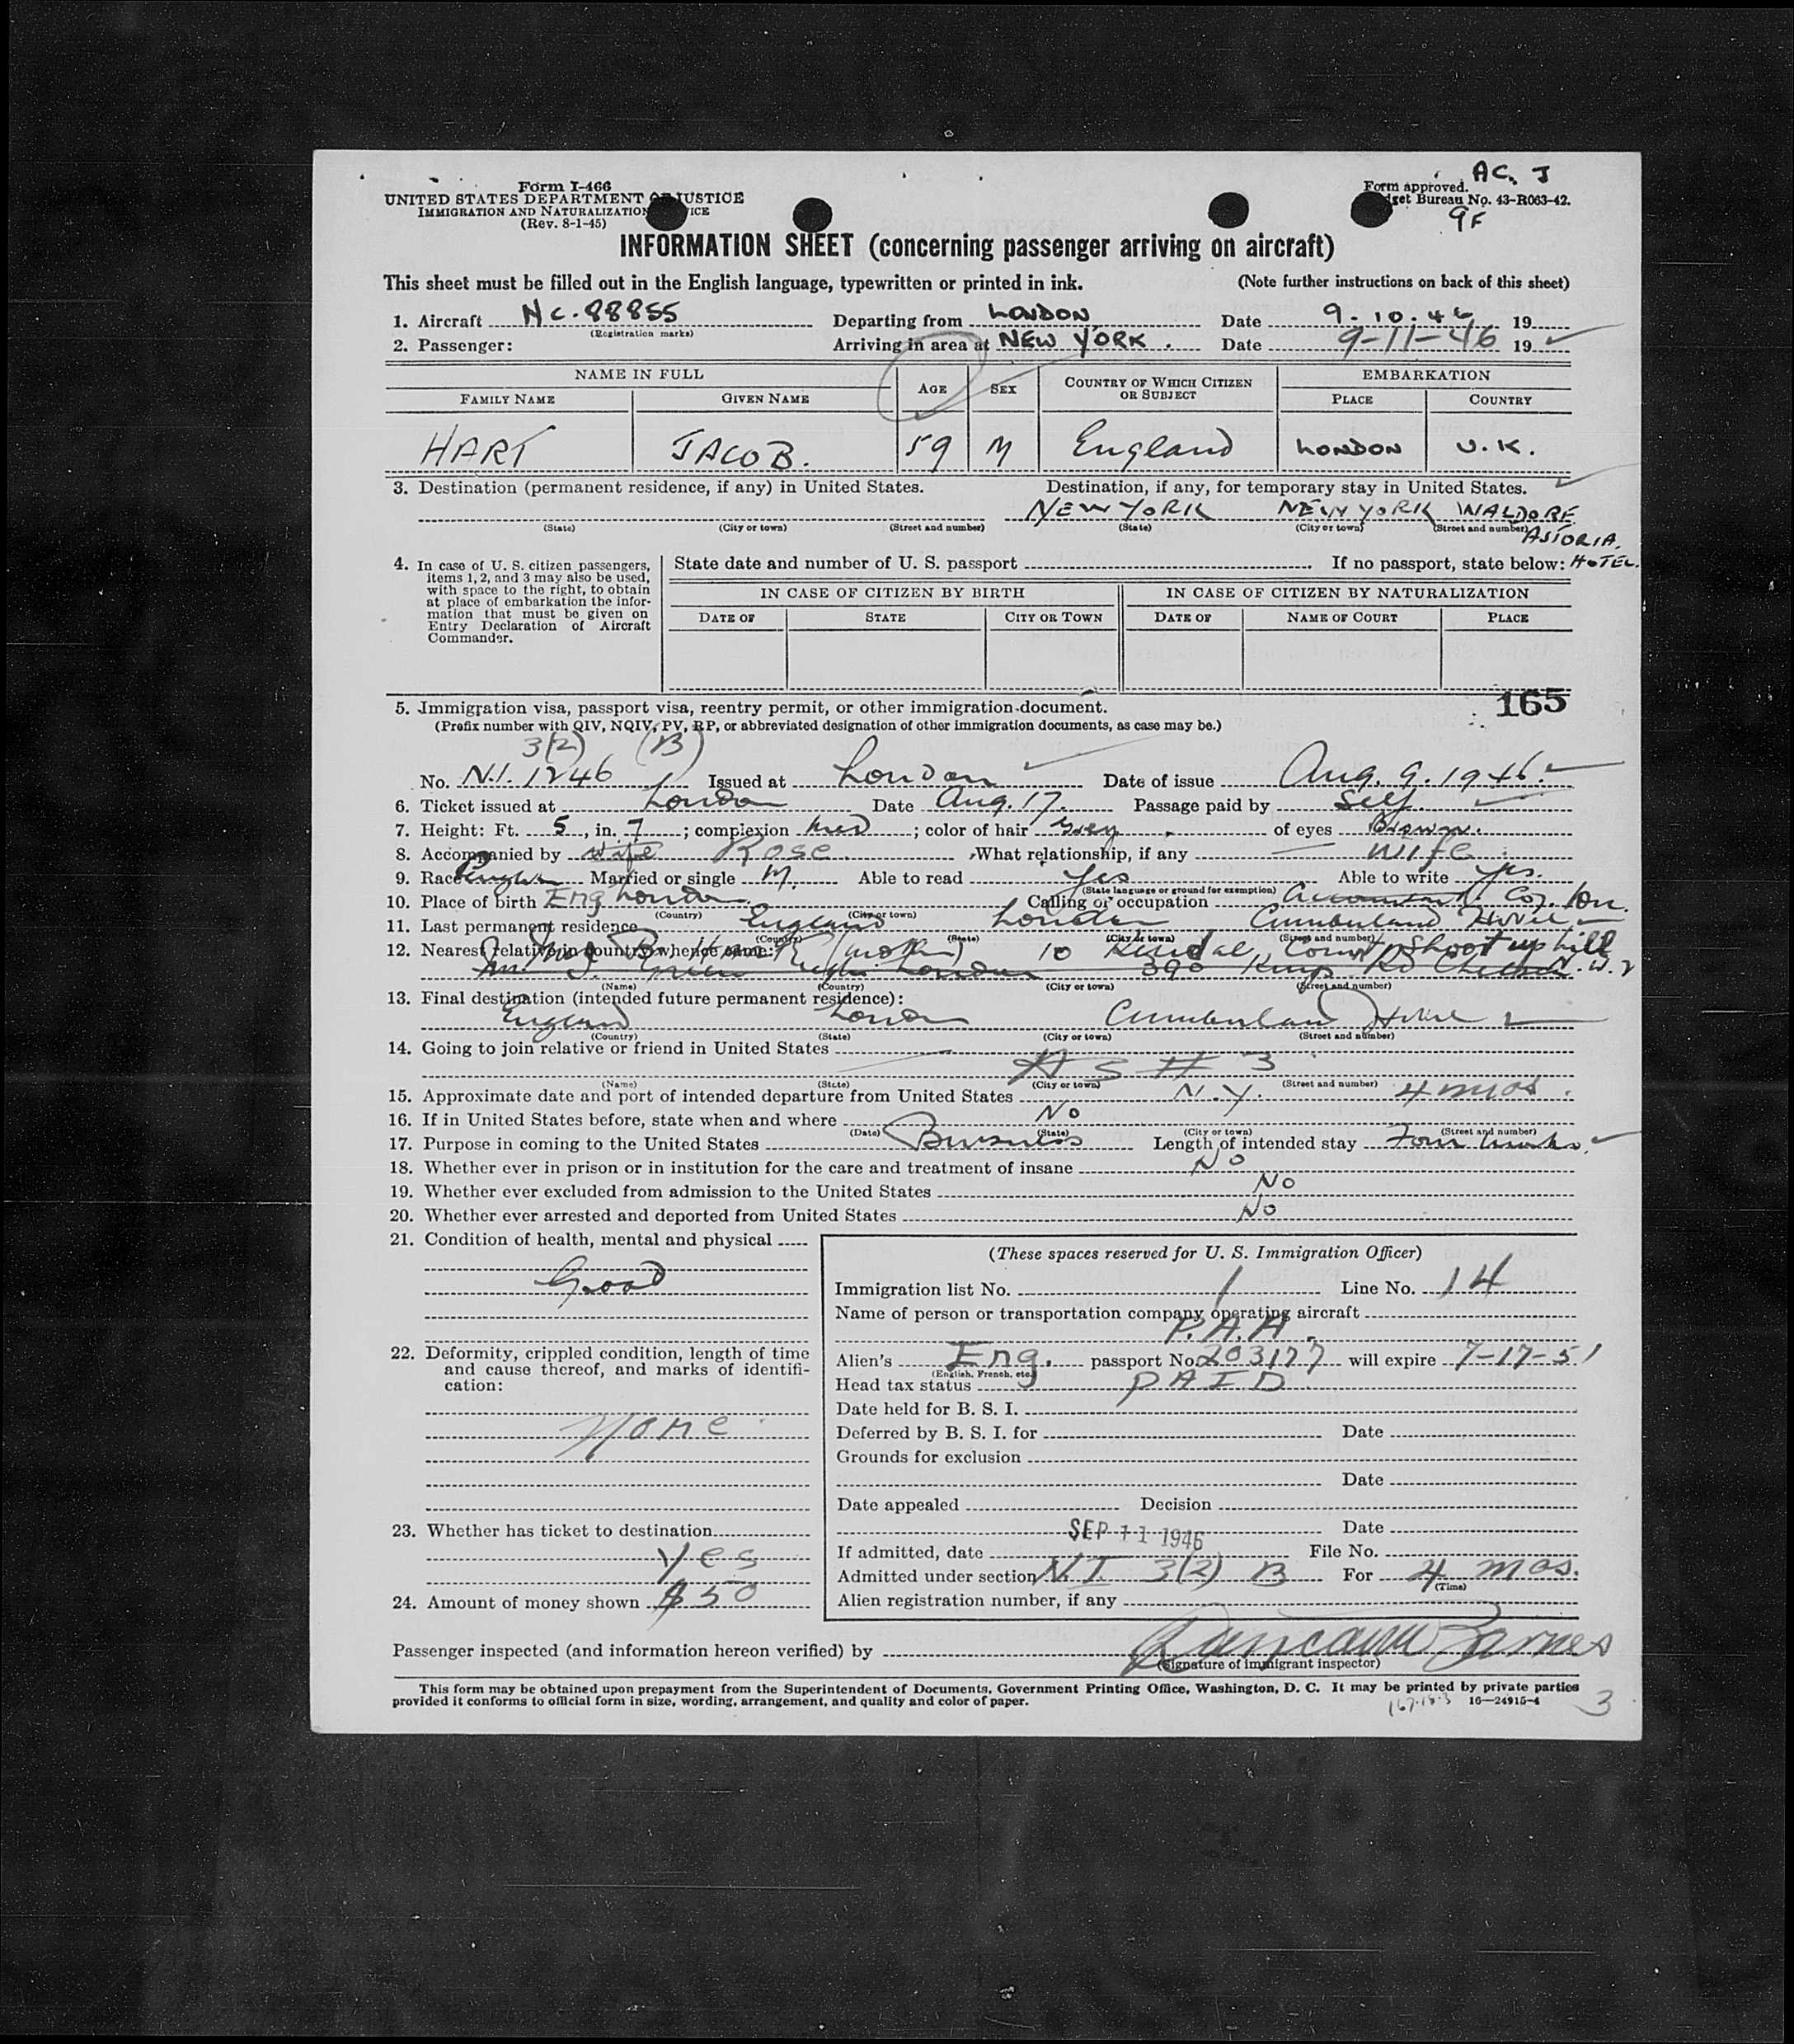 AC. J
Form I-466
UNITED STATES DEPARTMENT OF JUSTICE
IMMIGRATION AND NATURALIZATION SERVICE
(Rev. 8-1-45)
Form approved.
Budget Bureau No. 43-R063-42.
9F
INFORMATION SHEET (concerning passenger arriving on aircraft)
This sheet must be filled out in the English language, typewritten or printed in ink. (Note further instructions on back of this sheet)
1. Aircraft NC-88855 Departing from LONDON Date 9.10.46 19
(Registration marks)
2. Passenger: Arriving in area at NEW YORK. Date 9-11-46 19
NAME IN FULL AGE SEX COUNTRY OF WHICH CITIZEN OR SUBJECT EMBARKATION
FAMILY NAME GIVEN NAME PLACE COUNTRY
HART JACOB. 59 M England LONDON U.K.
3. Destination (permanent residence, if any) in United States. Destination, if any, for temporary stay in United States.
NEW YORK NEW YORK WALDORF
(State) (City or town) (Street and number) (State) (City or town) (Street and number)
ASTORIA.
HOTEL.
4. In case of U. S. citizen passengers,
items 1, 2, and 3 may also be used,
with space to the right, to obtain
at place of embarkation the infor-
mation that must be given on
Entry Declaration of Aircraft
Commander.
State date and number of U. S. passport If no passport, state below:
IN CASE OF CITIZEN BY BIRTH IN CASE OF CITIZEN BY NATURALIZATION
DATE OF STATE CITY OR TOWN DATE OF NAME OF COURT PLACE
165
5. Immigration visa, passport visa, reentry permit, or other immigration document.
(Prefix number with QIV, NQIV, PV, RP, or abbreviated designation of other immigration documents, as case may be.)
3(2) (B)
No. N.I. 1246 Issued at London Date of issue Aug. 9. 1946.
6. Ticket issued at London Date Aug. 17. Passage paid by Self
7. Height: Ft. 5, in. 7; complexion Med; color of hair Grey. of eyes Brown.
8. Accompanied by wife Rose What relationship, if any wife
9. Race English Married or single M. Able to read Yes Able to write yes.
(State language or ground for exemption)
10. Place of birth Eng London Calling or occupation Accountant Co.
(Country) (City or town)
11. Last permanent residence England London Cumberland Hotel
(Country) (State) (City or town) (Street and number)
12. Nearest relative in country whence came: (mother) 10 Kendal Court Shoot up hill
Green London 390 Kings Rd Chelsea N.W.2
(Name) (Country) (City or town) (Street and number)
13. Final destination (intended future permanent residence):
England London Cumberland Hotel
(Country) (State) (City or town) (Street and number)
14. Going to join relative or friend in United States
AS # 3
(Name) (State) (City or town) (Street and number)
15. Approximate date and port of intended departure from United States N.Y. 4 mos.
16. If in United States before, state when and where No
(Date) (State) (City or town) (Street and number)
17. Purpose in coming to the United States Business Length of intended stay Four
18. Whether ever in prison or in institution for the care and treatment of insane No
19. Whether ever excluded from admission to the United States No
20. Whether ever arrested and deported from United States No
21. Condition of health, mental and physical
Good
22. Deformity, crippled condition, length of time
and cause thereof, and marks of identifi-
cation:
None
23. Whether has ticket to destination
Yes
24. Amount of money shown $50
(These spaces reserved for U. S. Immigration Officer)
Immigration list No. 1 Line No. 14
Name of person or transportation company operating aircraft
P.A.A.
Alien's Eng. passport No. 203177 will expire 7-17-51
(English, French, etc.)
Head tax status PAID
Date held for B. S. I.
Deferred by B. S. I. for Date
Grounds for exclusion
Date
Date appealed Decision
SEP 11 1946 Date
If admitted, date File No.
Admitted under section N.I 3(2) B For 4 mos.
(Time)
Alien registration number, if any
Passenger inspected (and information hereon verified) by Barnes
(Signature of immigrant inspector)
This form may be obtained upon prepayment from the Superintendent of Documents, Government Printing Office, Washington, D. C. It may be printed by private parties
provided it conforms to official form in size, wording, arrangement, and quality and color of paper. 16—24915-4
3